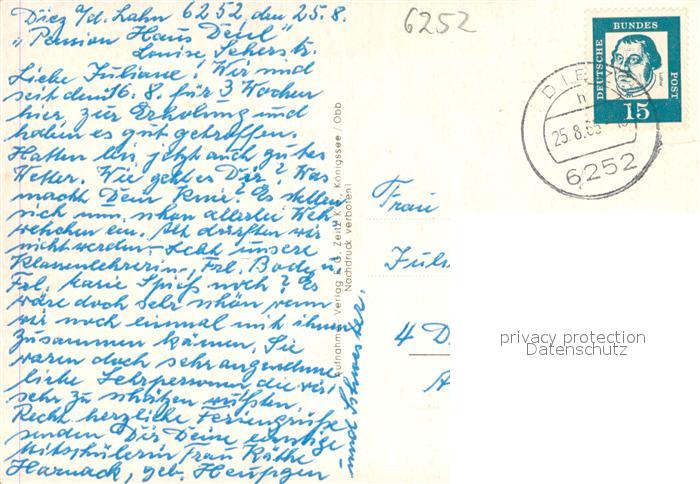 Diez a/d. Lahn 6252, den 25.8.
"Pension Haus Deul"
Louise Seherstr.
Liebe Juliane! Wir sind
seit dem 16.8. für 3 Wochen
hier, zur Erholung und
haben es gut getroffen.
Hatten bis jetzt auch gutes
Wetter. Wie geht es Dir? Was
macht Dein Knie? Es stellen
sich nun schon allerlei Weh
wehchen ein. Alt dürften wir
nicht werden. Lebt unsere
Klassenlehrerin, Frl. Bode u.
Frl. Marie Spieß noch? Es
wäre doch sehr schön wenn
wir noch einmal mit ihnen
zusammen kämen. Sie
waren doch sehr angenehme
liebe Lehrpersonen, die wir
sehr zu schätzen wußten.
Recht herzliche Feriengrüße
senden Dir Deine einstige
Mitschülerin Frau Käthe
Harnack, geb. Heupgen
und Schwester.
Aufnahme: Verlag KG, Zeitz Königssee/Obb
Nachdruck verboten!
6252
DEUTSCHE BUNDES POST
15
DIEZ
h
25.8.65
6252
Frau
Juli
4 D
A
privacy protection
Datenschutz